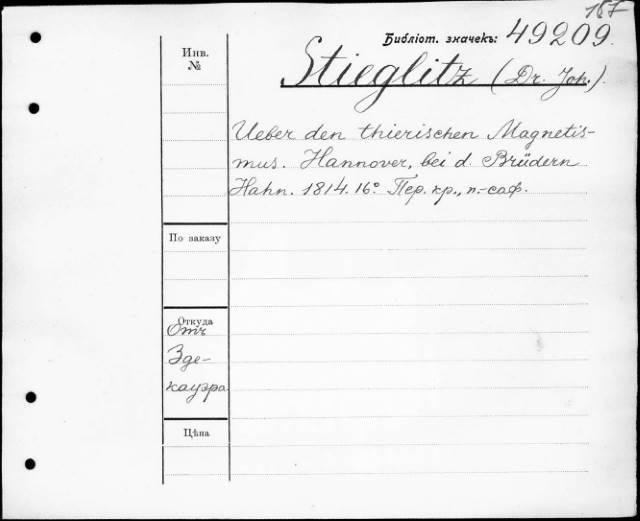 187
Библіот. значекъ: 49209.
Инв.
№
Stieglitz (Dr. Joh.).
Ueber den thierischen Magnetis-
mus. Hannover, bei d. Brüdern
Hahn. 1814. 16° Пер. кр., п.-саф.
По заказу
Откуда
Отъ
Зде-
кауэра
Цѣна